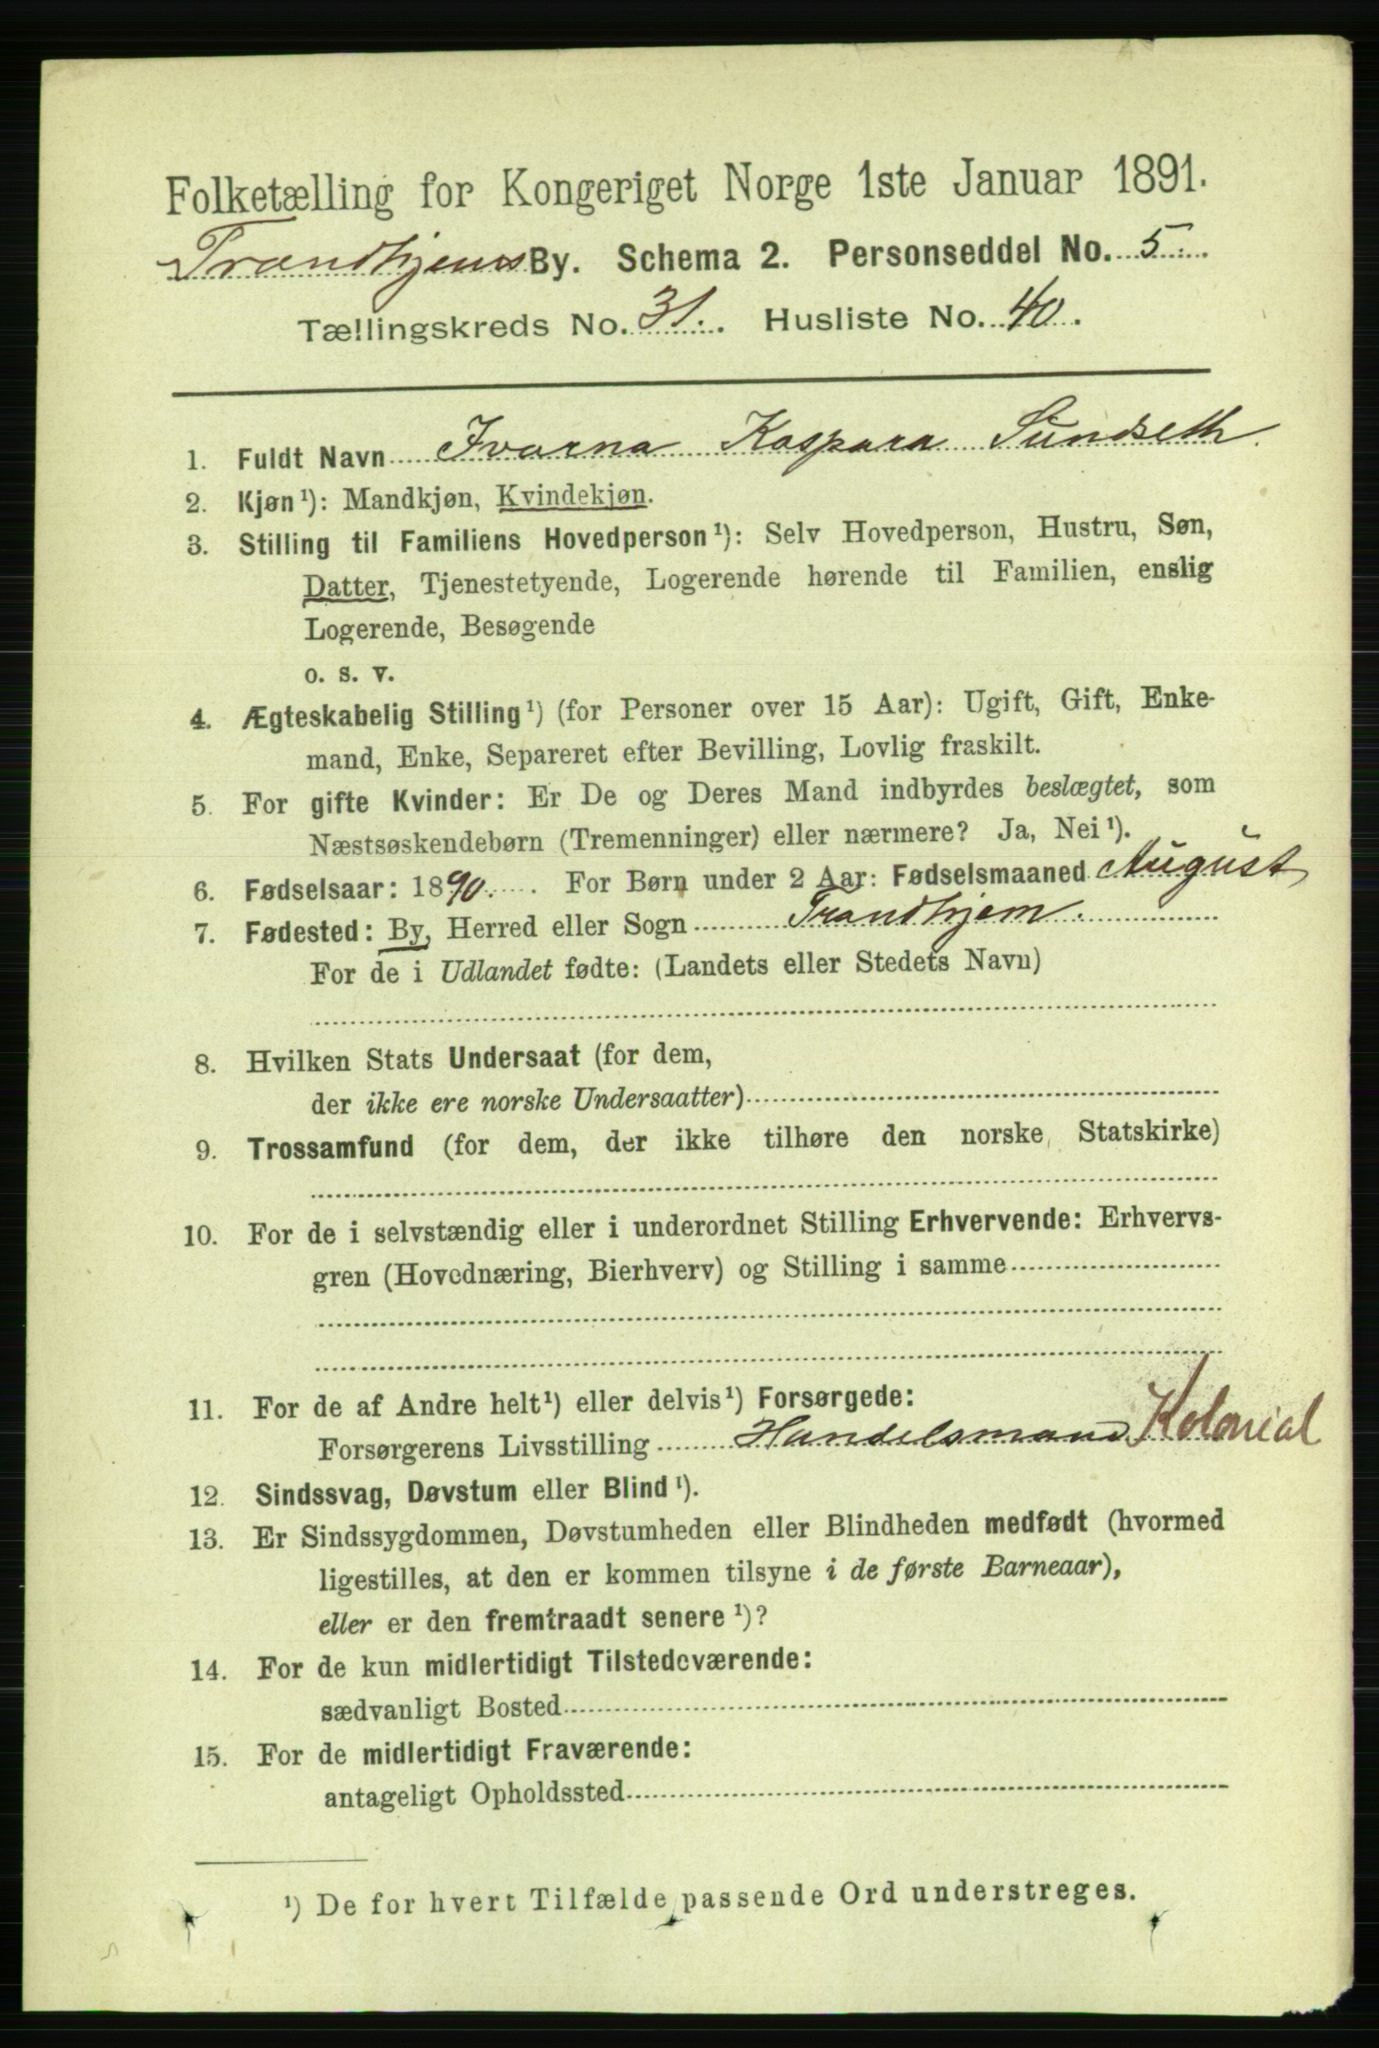 Folketælling for Kongeriget Norge 1ste Januar 1891.
Trondhjems By. Schema 2. Personseddel No. 5.
Tællingskreds No. 31. Husliste No. 40.
1. Fuldt Navn Ivarna Kaspara Sundseth.
2. Kjøn¹): Mandkjøn, Kvindekjøn.
3. Stilling til Familiens Hovedperson¹): Selv Hovedperson, Hustru, Søn,
Datter, Tjenestetyende, Logerende hørende til Familien, enslig
Logerende, Besøgende
o. s. v.
4. Ægteskabelig Stilling¹) (for Personer over 15 Aar): Ugift, Gift, Enke-
mand, Enke, Separeret efter Bevilling, Lovlig fraskilt.
5. For gifte Kvinder: Er De og Deres Mand indbyrdes beslægtet, som
Næstsøskendebørn (Tremenninger) eller nærmere? Ja, Nei¹).
6. Fødselsaar: 1890. For Børn under 2 Aar: Fødselsmaaned August
7. Fødested: By, Herred eller Sogn Trondhjem.
For de i Udlandet fødte: (Landets eller Stedets Navn)
8. Hvilken Stats Undersaat (for dem,
der ikke ere norske Undersaatter)
9. Trossamfund (for dem, der ikke tilhøre den norske Statskirke)
10. For de i selvstændig eller i underordnet Stilling Erhvervende: Erhvervs-
gren (Hovednæring, Bierhverv) og Stilling i samme
11. For de af Andre helt¹) eller delvis¹) Forsørgede:
Forsørgerens Livsstilling Handelsmand Kolonial
12. Sindssvag, Døvstum eller Blind¹).
13. Er Sindssygdommen, Døvstumheden eller Blindheden medfødt (hvormed
ligestilles, at den er kommen tilsyne i de første Barneaar),
eller er den fremtraadt senere¹)?
14. For de kun midlertidigt Tilstedeværende:
sædvanligt Bosted
15. For de midlertidigt Fraværende:
antageligt Opholdssted
¹) De for hvert Tilfælde passende Ord understreges.